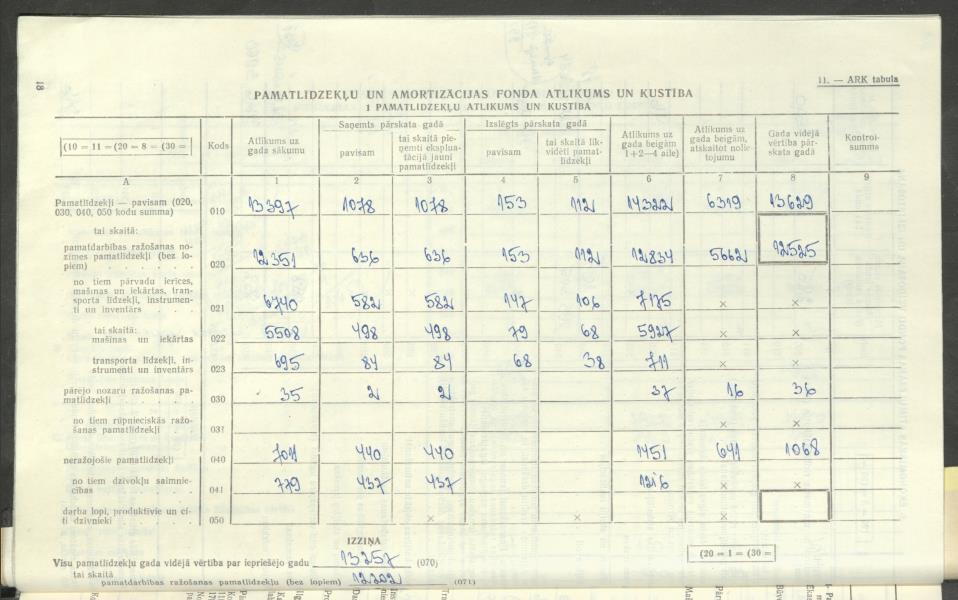 18
11. — ARK tabula
PAMATLIDZEKĻU UN AMORTIZĀCIJAS FONDA ATLIKUMS UN KUSTĪBA
1 PAMATLIDZEKĻU ATLIKUMS UN KUSTĪBA
(10 = 11 = (20 = 8 = (30 =
Kods
Atlikums uz gada sākumu
Saņemts pārskata gadā
pavisam
tai skaitā pieņemti ekspluatācijā jauni pamatlīdzekļi
Izslēgts pārskata gadā
pavisam
tai skaitā likvidēti pamatlīdzekļi
Atlikums uz gada beigām 1+2—4 aile)
Atlikums uz gada beigām, atskaitot nolietojumu
Gada vidējā vērtība pārskata gadā
Kontrolsumma
A 1 2 3 4 5 6 7 8 9
Pamatlīdzekļi — pavisam (020,
030, 040, 050 kodu summa) 010 13397 1078 1078 153 112 14322 6319 13629
tai skaitā:
pamatdarbības ražošanas nozīmes
pamatlīdzekļi (bez lopiem) 020 12351 636 636 153 112 12834 5662 12525
no tiem pārvadu ierīces,
mašīnas un iekārtas, transporta
līdzekļi, instrumenti
un inventārs 021 6740 582 582 147 106 7175 × ×
tai skaitā:
mašīnas un iekārtas 022 5508 498 498 79 68 5927 × ×
transporta līdzekļi, instrumenti
un inventārs 023 695 84 84 68 38 711 × ×
pārējo nozaru ražošanas pamatlīdzekļi 030 35 2 2 37 16 36
no tiem rūpnieciskās ražošanas
pamatlīdzekļi 031 × ×
neražojošie pamatlīdzekļi 040 440 440 1451 641 1068
no tiem dzīvokļu saimniecības 041 779 437 437 1216 × ×
darba lopi, produktīvie un citi
dzīvnieki 050 × × × ×
IZZIŅA
Visu pamatlīdzekļu gada vidējā vērtība par iepriešējo gadu 13257 (070)
tai skaitā
pamatdarbības ražošanas pamatlīdzekļu (bez lopiem) 12202 (071)
(20 = 1 = (30 =